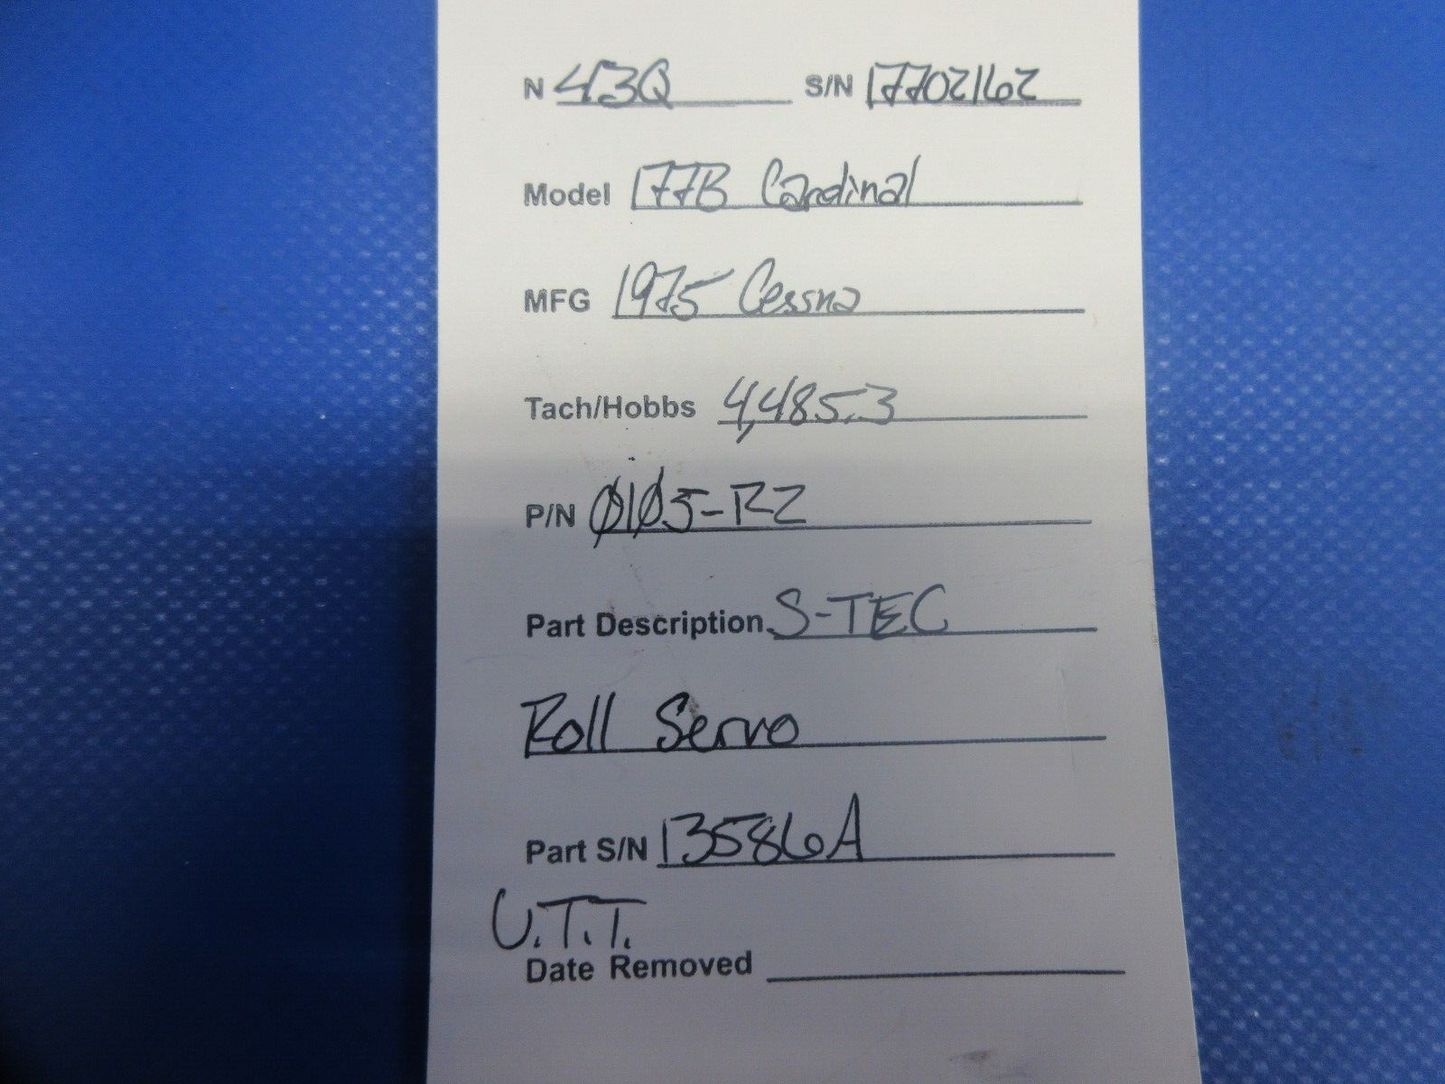 N 43Q S/N 17702162
Model 177B Cardinal
MFG 1975 Cessna
Tach/Hobbs 4,485.3
P/N 0105-R2
Part Description S-TEC
Roll Servo
Part S/N 13586A
U.T.T.
Date Removed